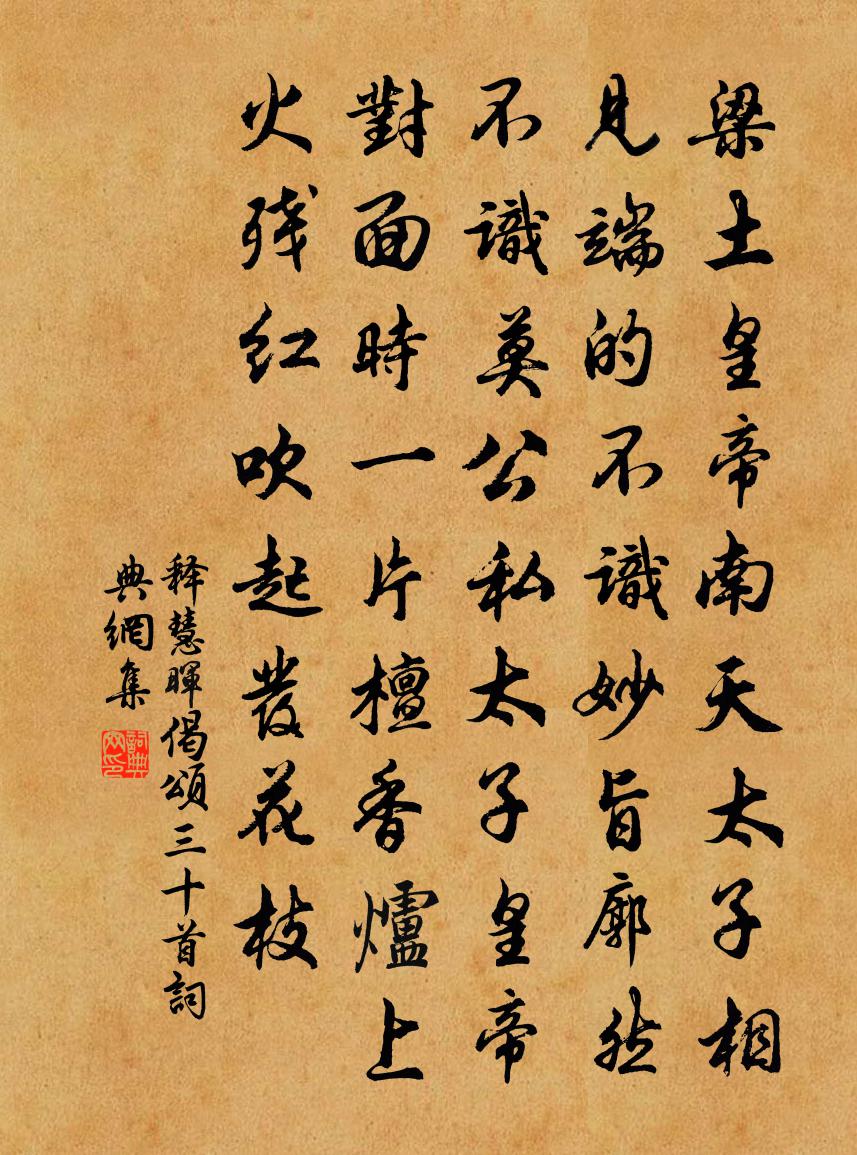 梁土皇帝南天太子相
見端的不識妙旨廓然
不識莫公私太子皇帝
對面時一片檀香爐上
火残红吹起發花枝
释慧暉偈頌三十首詞
典網集
詞典